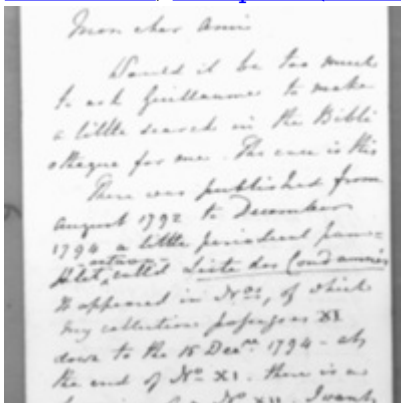 Mon cher Ami
Would it be too much
to ask Guillaume to make
a little search in the Bibli
otheque for me. The case is this
There was published from
August 1792 to December
1794 a little periodical pam=
phlet, called Liste des Condamnés
It appeared in Nos, of which
my collection goes XI
down to the 15 Decr 1794 - at
the end of No XI. there is a
No XII. I want